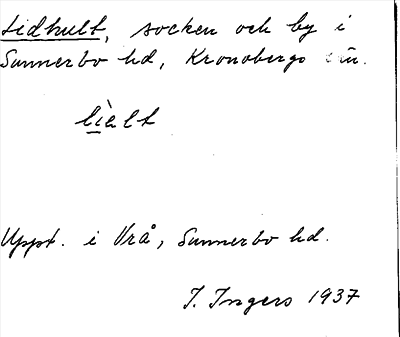 Lidhult, socken och by i
Sunnerbo hd, Kronobergs län.
lìalt
Uppt. i Vrå, Sunnerbo hd.
I. Ingers 1937